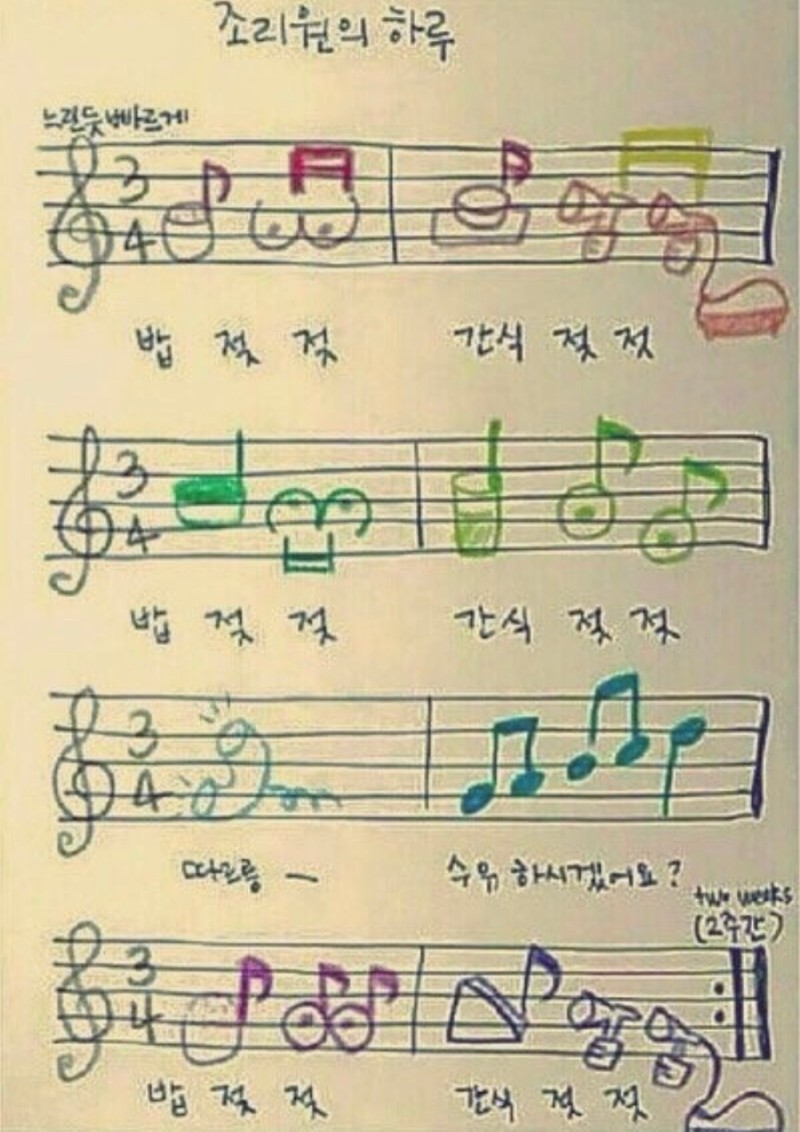 조리원의 하루
느린듯 빠르게
3
4
밥 젖 젖 간식 젖 젖
3
4
밥 젖 젖 간식 젖 젖
3
4
따르릉 — 수유 하시겠어요?
two weeks
(2주간)
3
4
밥 젖 젖 간식 젖 젖